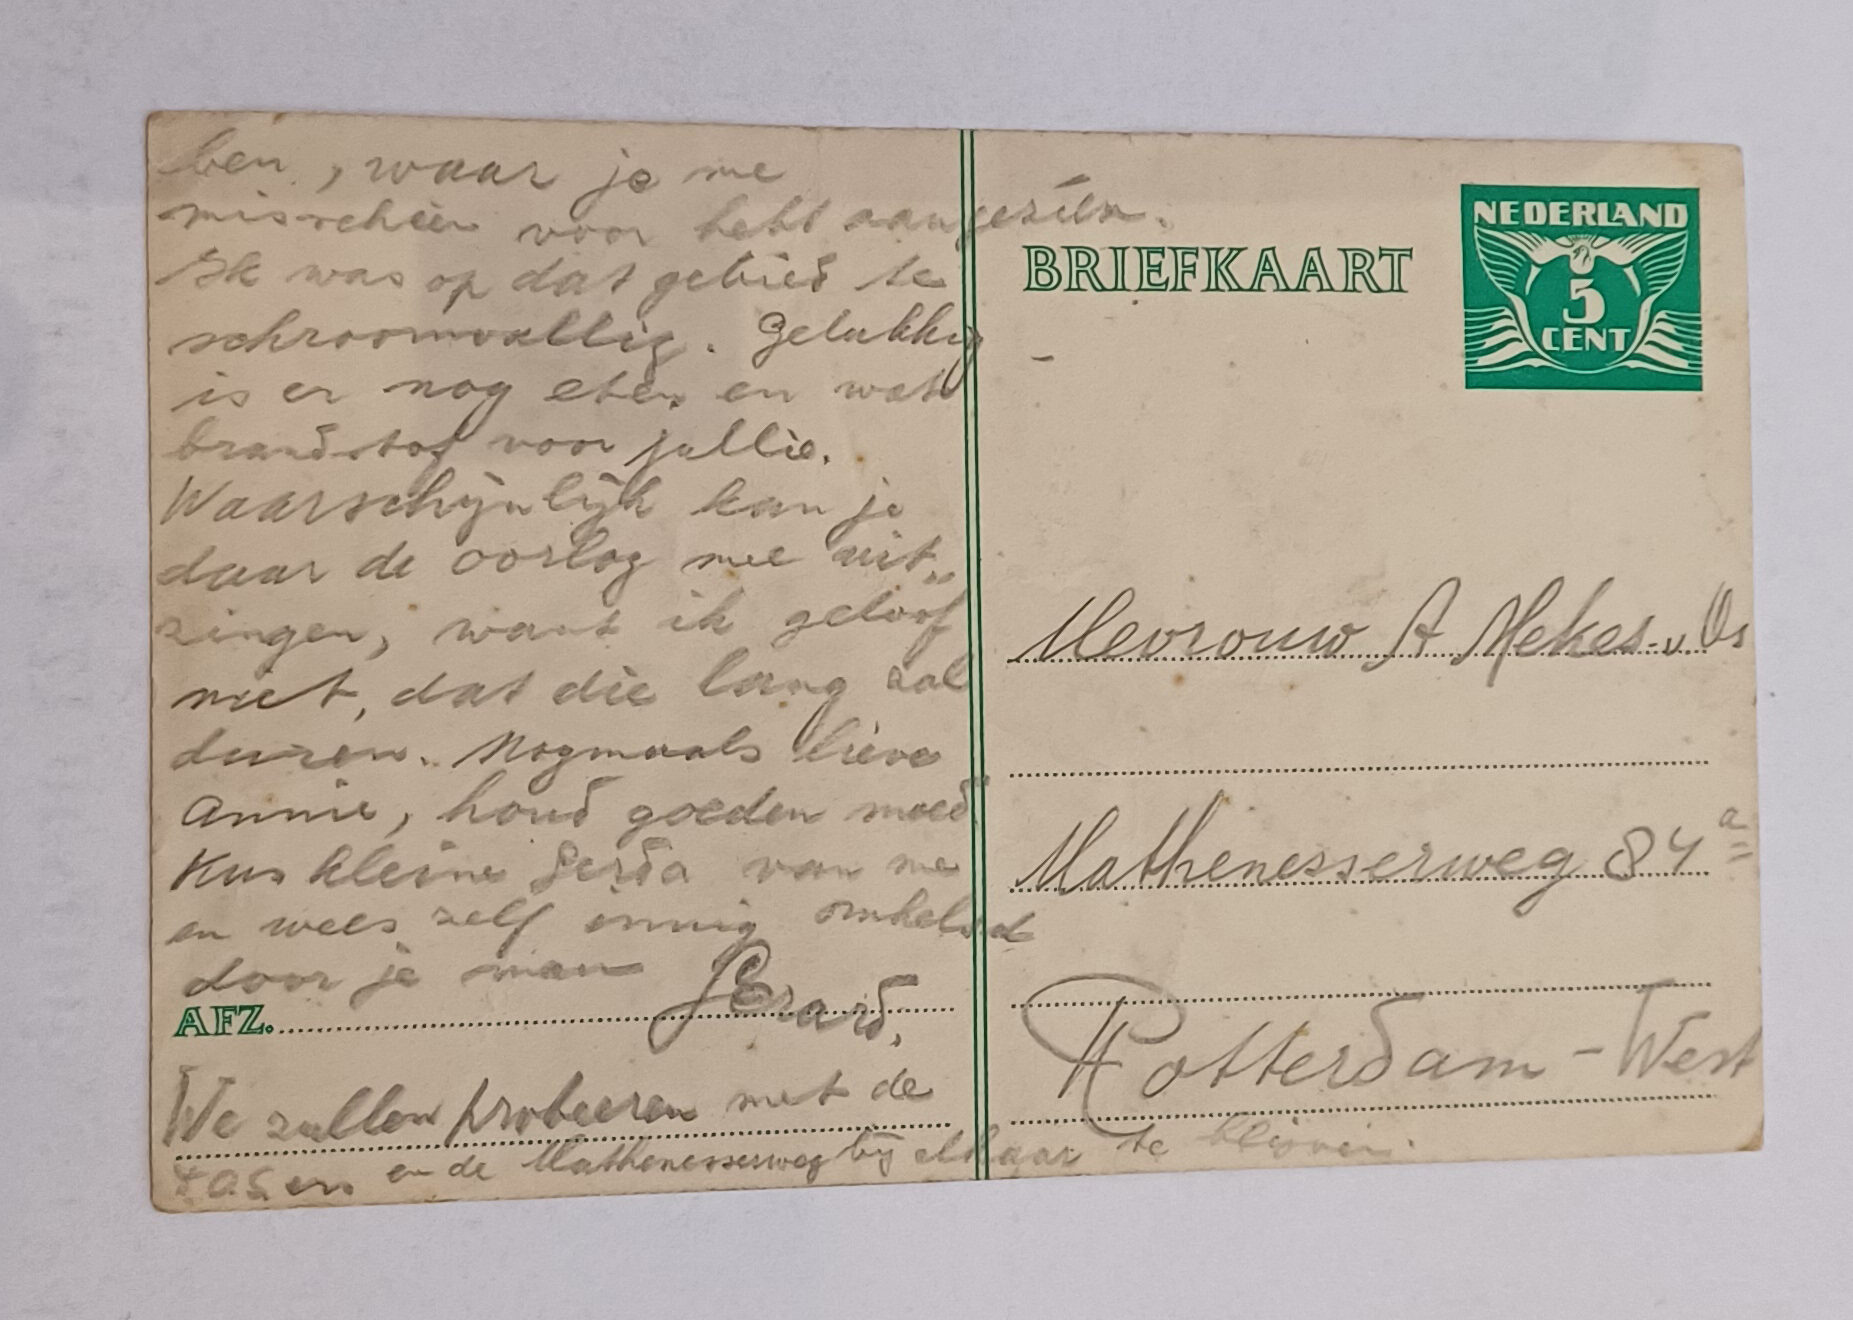 ben, waar je me
misschien voor hebt aangezien.
Ik was op dat gebied te
schroomvallig. Gelukkig
is er nog eten en wat
brandstof voor jullie.
Waarschijnlijk kan je
daar de oorlog mee uit„
zingen, want ik geloof
niet, dat die lang zal
duren. Nogmaals lieve
Annie, houd goeden moed
Kus kleine Gerda van me
en wees zelf innig omhelsd
door je man Gerard.
AFZ.
We zullen probeeren met de
en de Mathenesserweg bij elkaar te blijven.
BRIEFKAART
NEDERLAND
5
CENT
Mevrouw A Mekes-v Os
Mathenesserweg 84a
Rotterdam-West